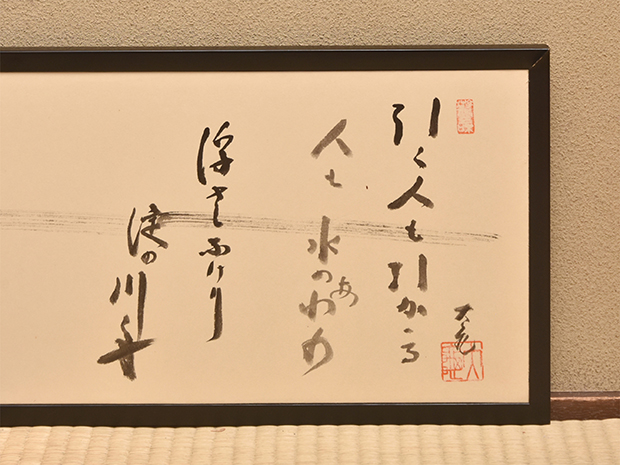 引く人も引かる
人も水のあわの
浮世なりけり
淀の川舟
大亀